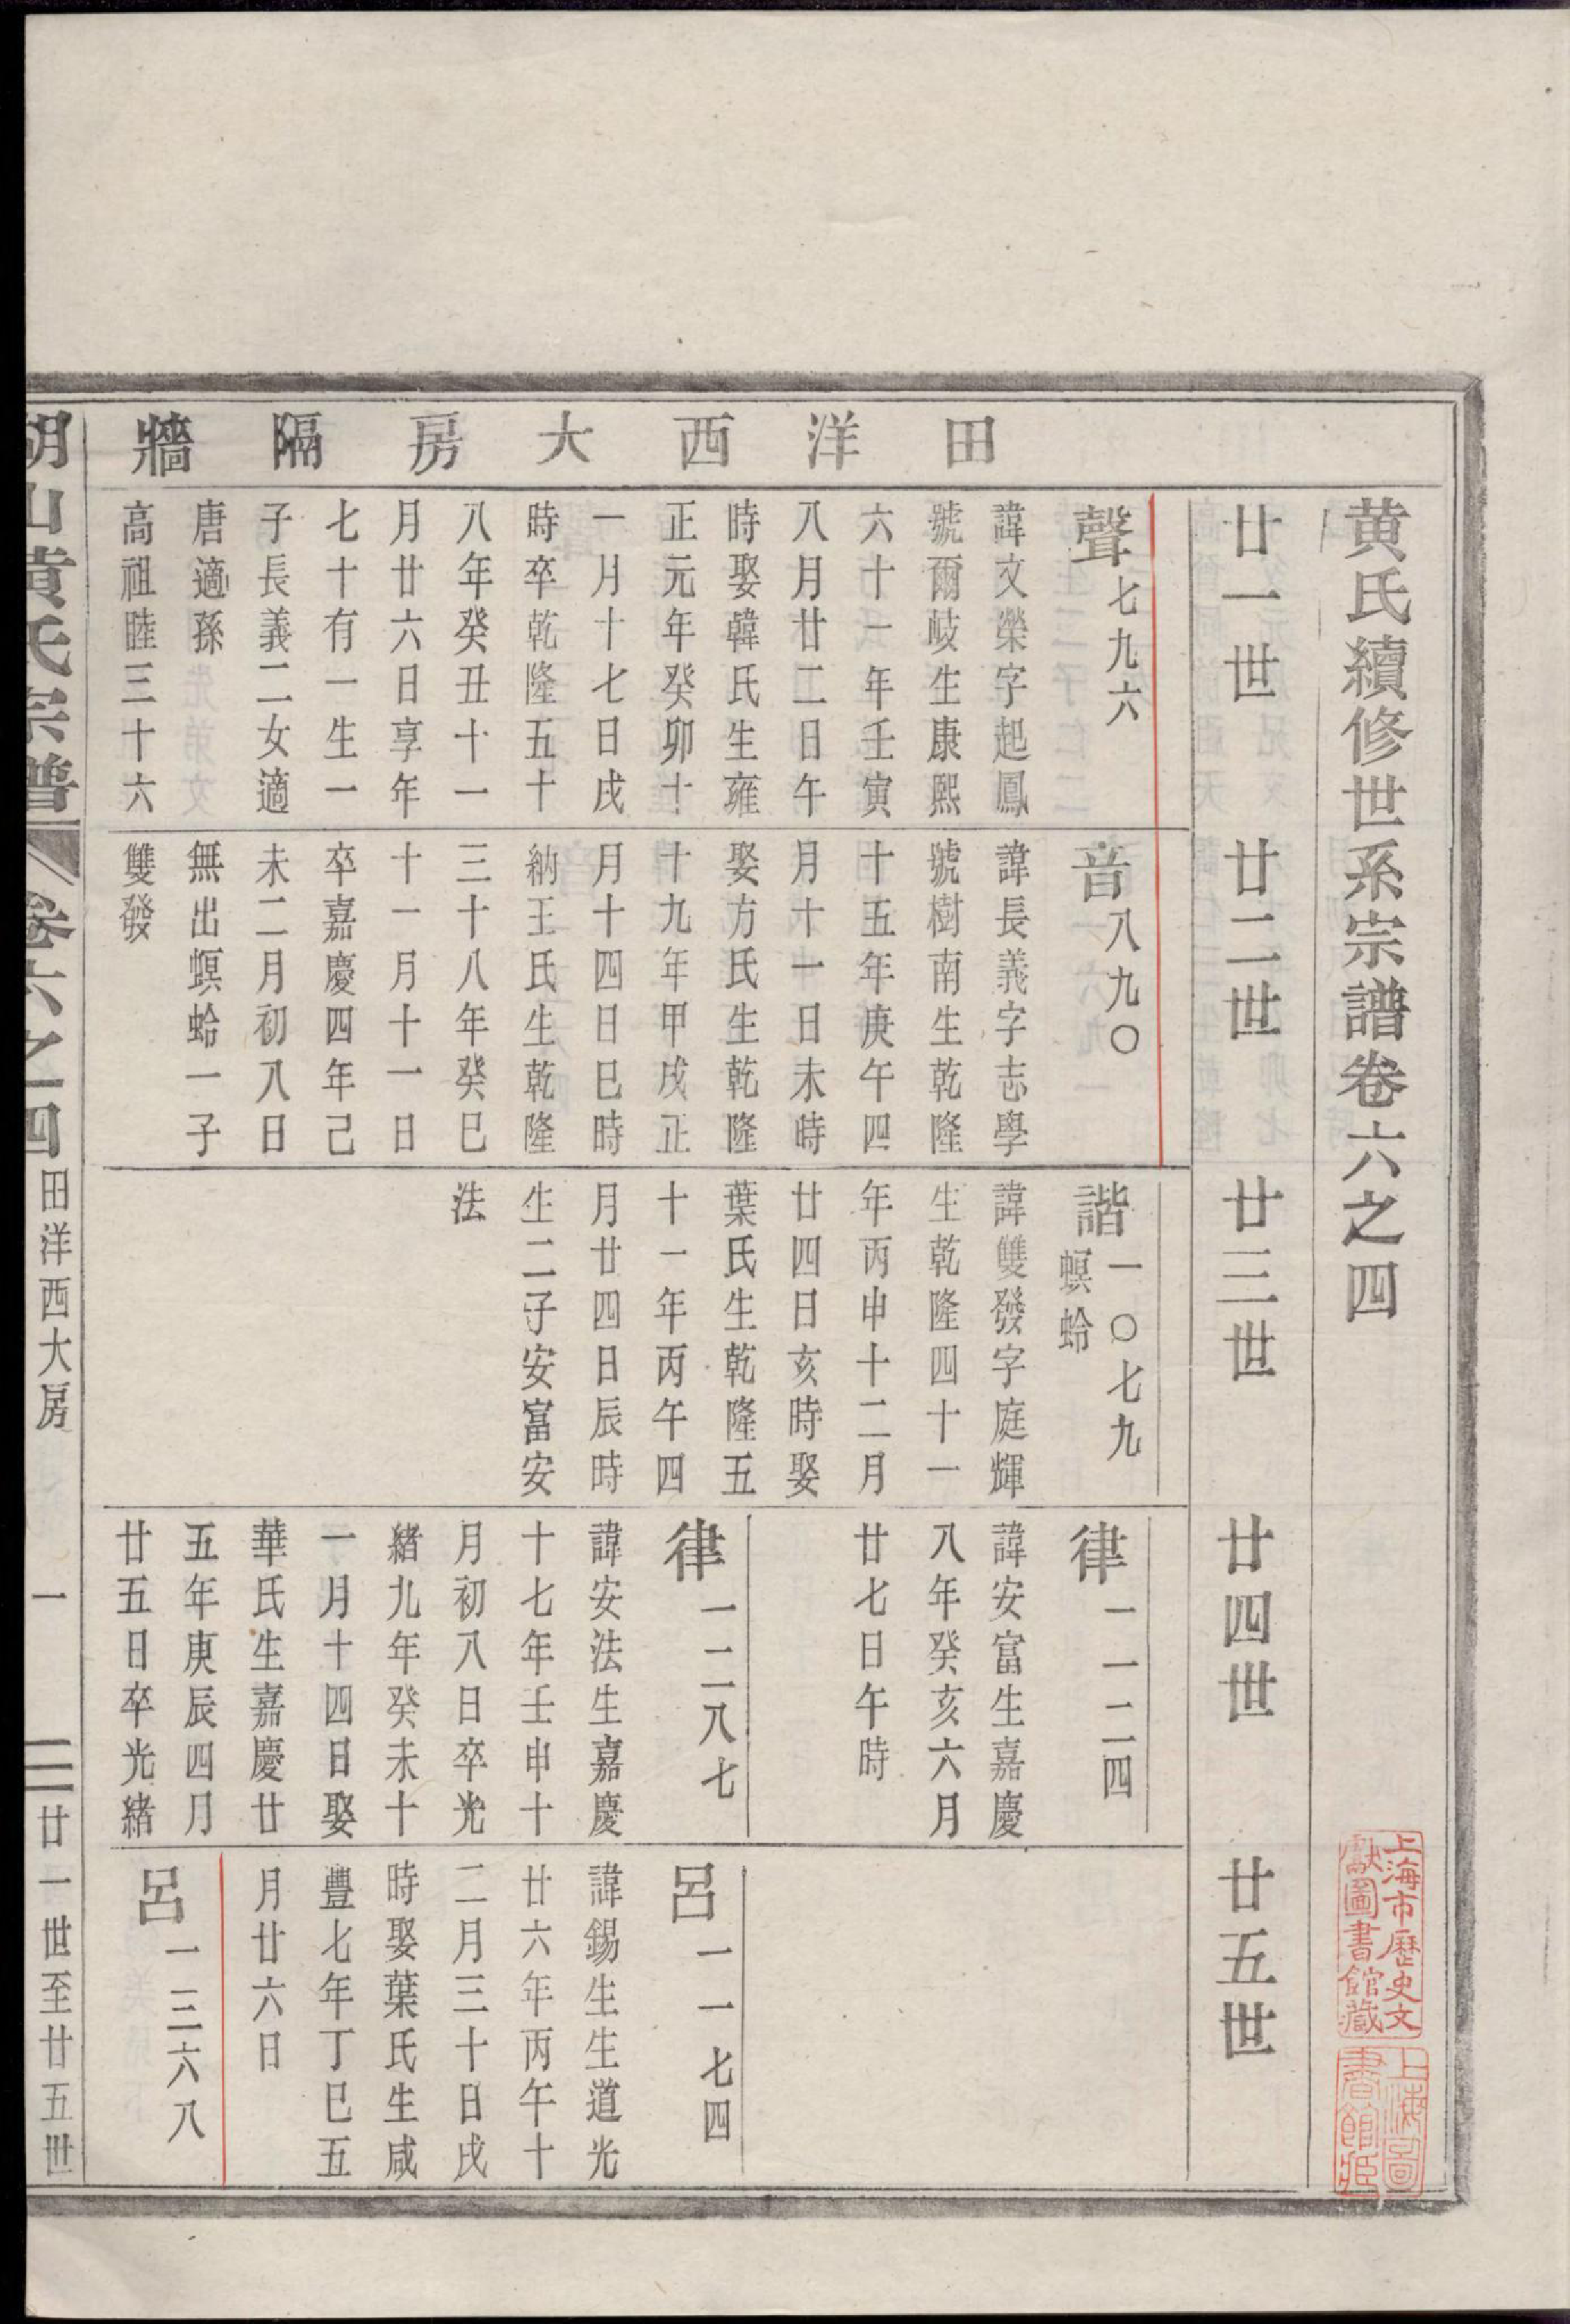 黄氏續修世系宗譜卷六之四
上海市歷史文
獻圖書館藏
上海圖
書館藏
廿一世
廿二世
廿三世
廿四世
廿五世
田洋西大房隔牆
聲七九六
諱文榮字起鳳
號爾岐生康熙
六十一年壬寅
八月廿二日午
時娶韓氏生雍
正元年癸卯十
一月十七日戌
時卒乾隆五十
八年癸丑十一
月廿六日享年
七十有一生一
子長義二女適
唐適孫
高祖睦三十六
音八九〇
諱長義字志學
號樹南生乾隆
十五年庚午四
月十一日未時
娶方氏生乾隆
十九年甲戌正
月十四日巳時
納王氏生乾隆
三十八年癸巳
十一月十一日
卒嘉慶四年己
未二月初八日
無出螟蛉一子
雙發
諧一〇七九
螟蛉
諱雙發字庭輝
生乾隆四十一
年丙申十二月
廿四日亥時娶
葉氏生乾隆五
十一年丙午四
月廿四日辰時
生二子安富安
法
律一一二四
諱安富生嘉慶
八年癸亥六月
廿七日午時
律一二八七
諱安法生嘉慶
十七年壬申十
月初八日卒光
緒九年癸未十
一月十四日娶
華氏生嘉慶廿
五年庚辰四月
廿五日卒光緒
呂一一七四
諱錫生生道光
廿六年丙午十
二月三十日戌
時娶葉氏生咸
豐七年丁巳五
月廿六日
呂一三六八
胡山黄氏宗譜 卷六之四 田洋西大房 一 廿一世至廿五世